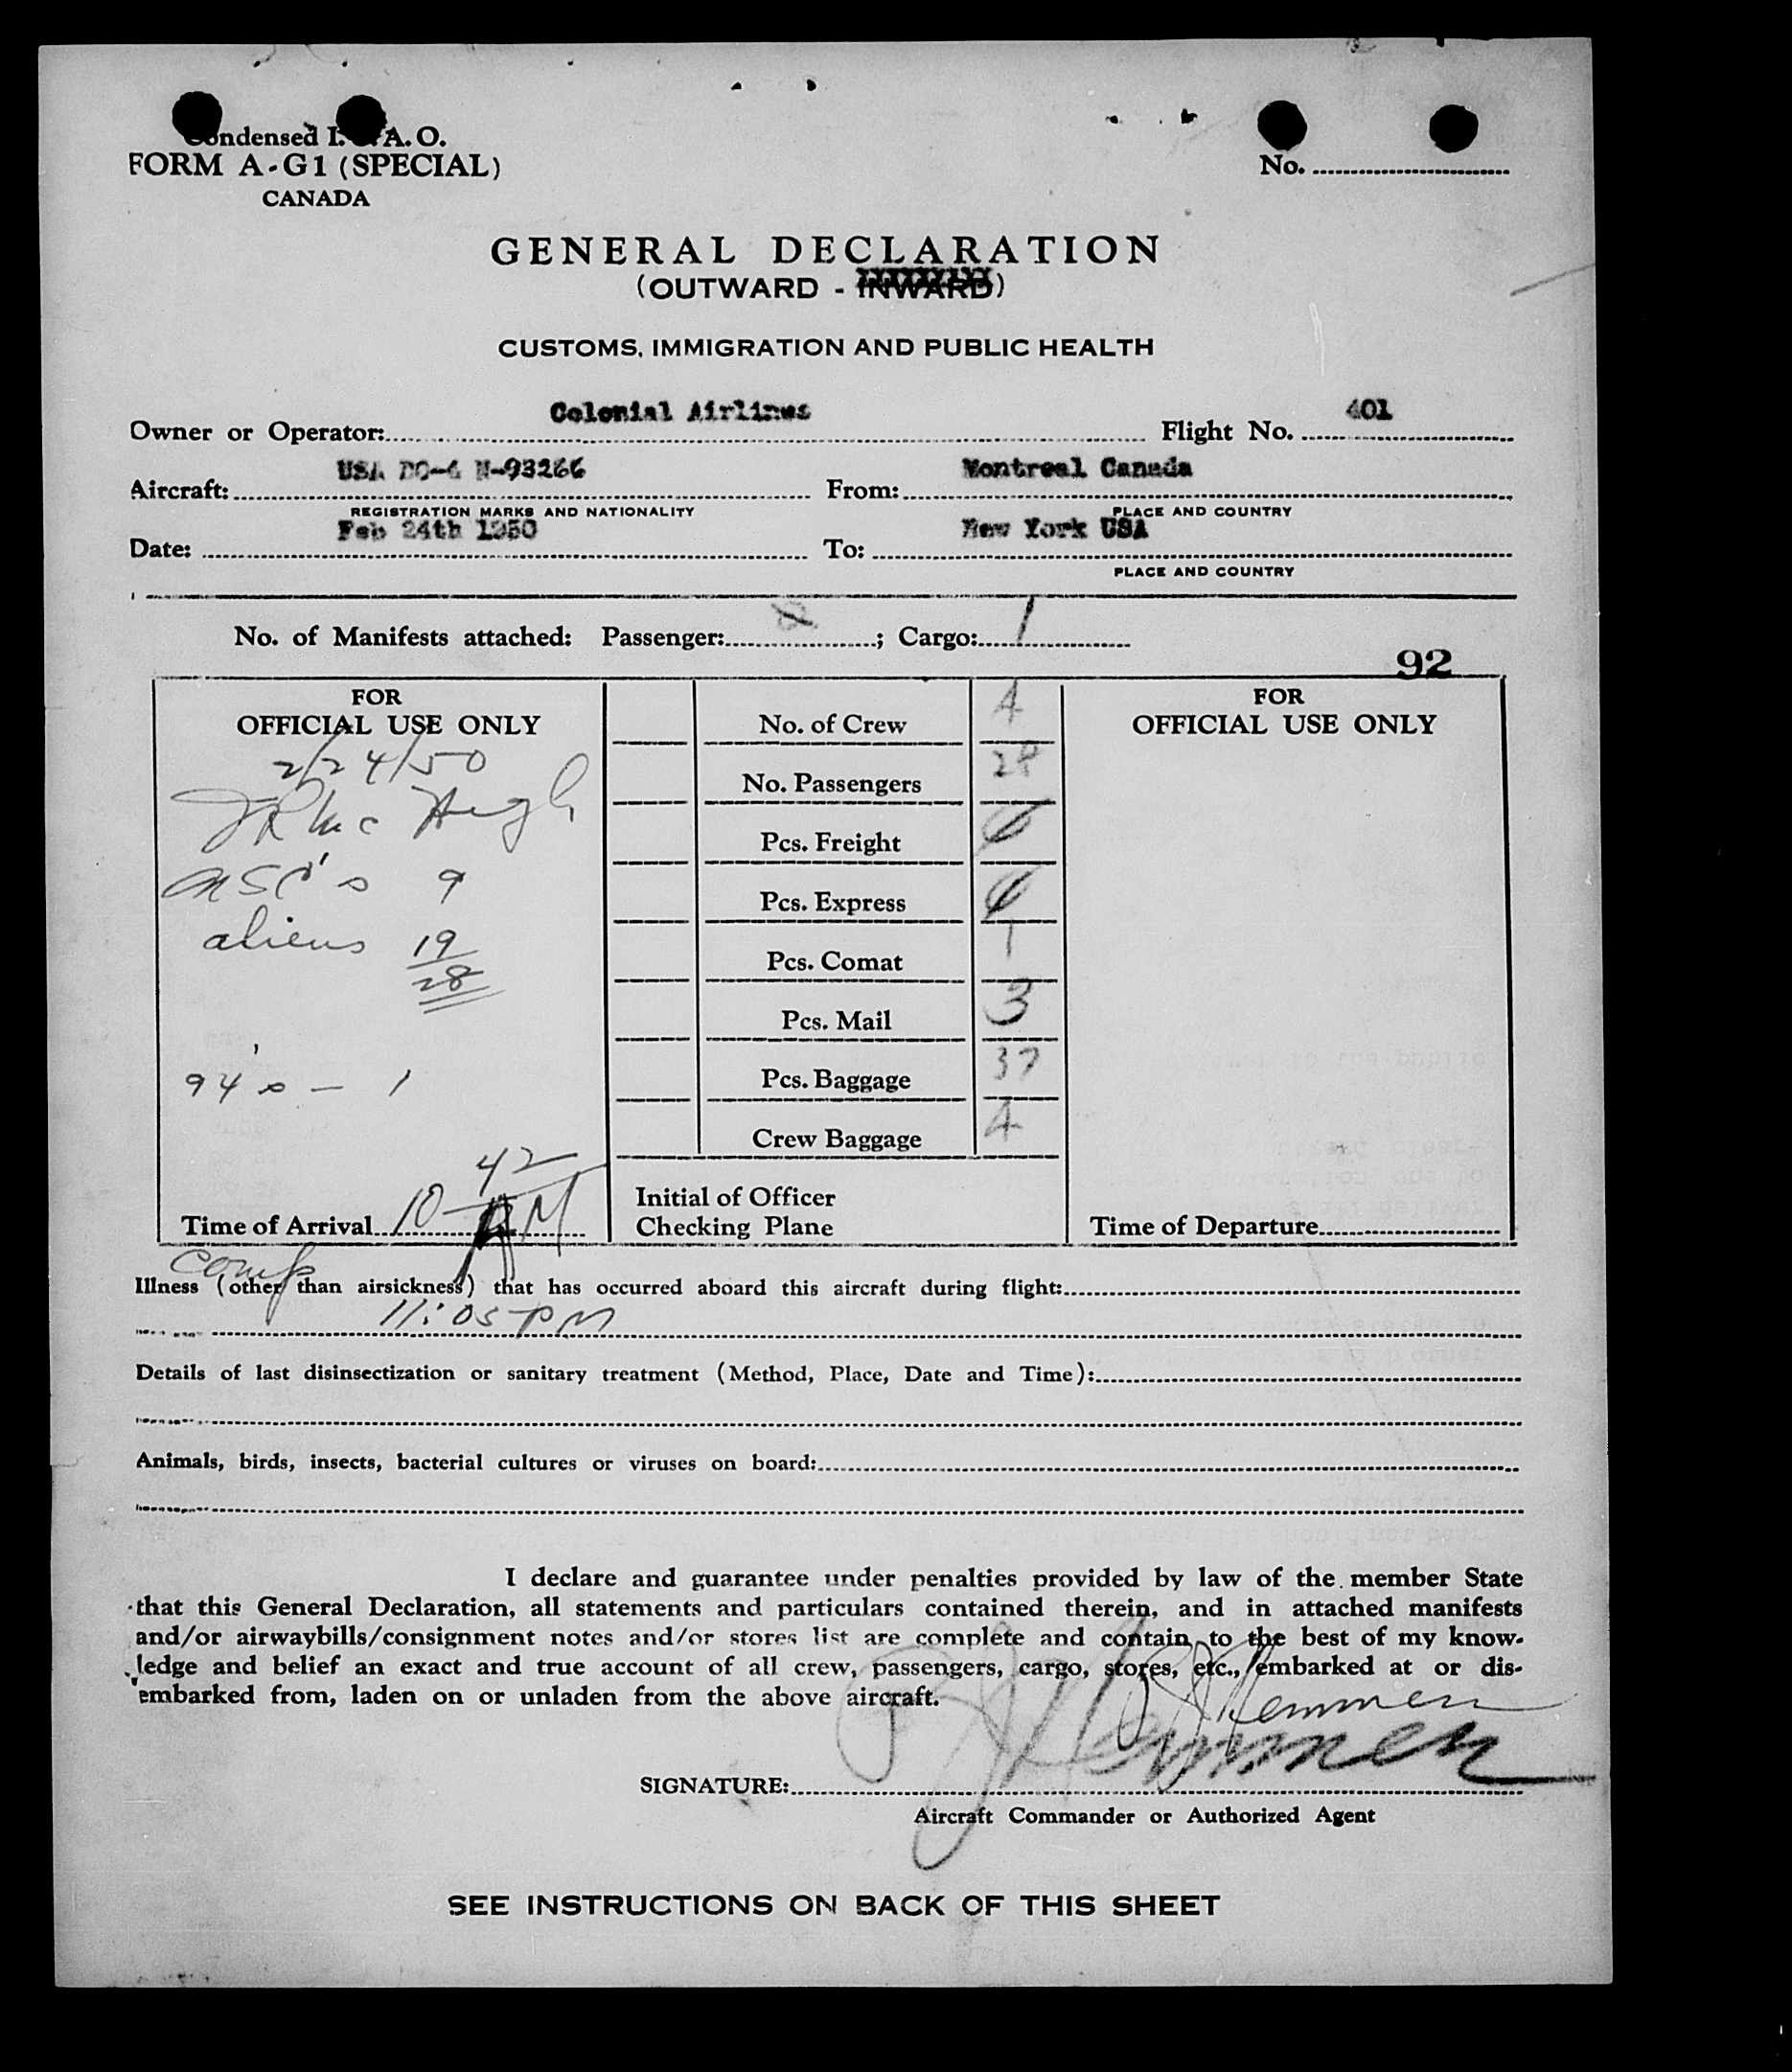 Condensed I. A. O.
FORM A-G1 (SPECIAL)
CANADA
No.
GENERAL DECLARATION
(OUTWARD - INWARD)
CUSTOMS, IMMIGRATION AND PUBLIC HEALTH
Owner or Operator: Colonial Airlines Flight No. 401
Aircraft: USA DC-4 N-93266 From: Montreal Canada
REGISTRATION MARKS AND NATIONALITY PLACE AND COUNTRY
Date: Feb 24th 1950 To: New York USA
PLACE AND COUNTRY
No. of Manifests attached: Passenger: ; Cargo: 1
92
FOR
OFFICIAL USE ONLY
2/24/50
aliens 19
28
94's - 1
Time of Arrival 10-42 PM
No. of Crew 4
No. Passengers 28
Pcs. Freight
Pcs. Express
Pcs. Comat 1
Pcs. Mail 3
Pcs. Baggage 37
Crew Baggage 4
Initial of Officer
Checking Plane
FOR
OFFICIAL USE ONLY
Time of Departure
Comp
Illness (other than airsickness) that has occurred aboard this aircraft during flight:
11:05 PM
Details of last disinsectization or sanitary treatment (Method, Place, Date and Time):
Animals, birds, insects, bacterial cultures or viruses on board:
I declare and guarantee under penalties provided by law of the member State
that this General Declaration, all statements and particulars contained therein, and in attached manifests
and/or airwaybills/consignment notes and/or stores list are complete and contain to the best of my know-
ledge and belief an exact and true account of all crew, passengers, cargo, stores, etc., embarked at or dis-
embarked from, laden on or unladen from the above aircraft.
SIGNATURE:
Aircraft Commander or Authorized Agent
SEE INSTRUCTIONS ON BACK OF THIS SHEET